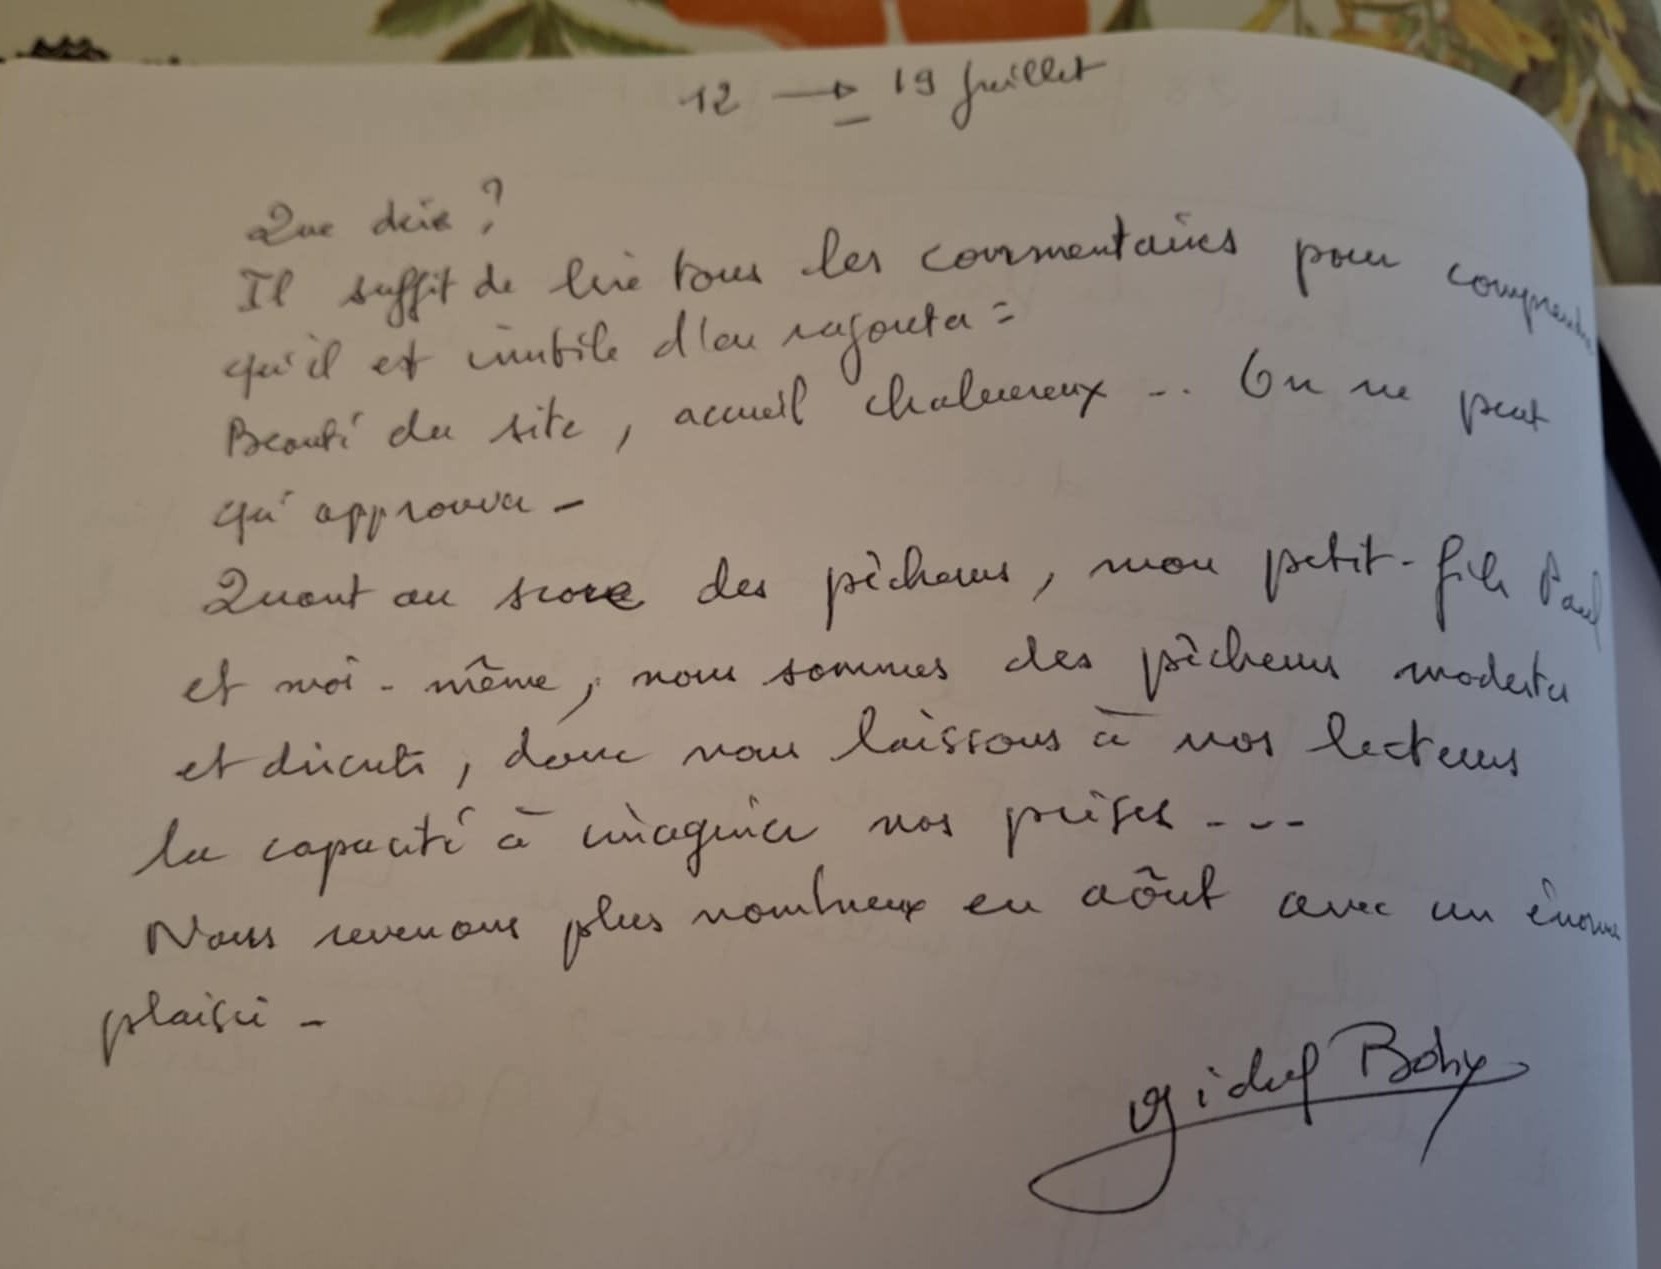 12 → 19 Juillet
Que dire ?
Il suffit de lire tous les commentaires pour comprendre
qu'il est inutile d'en rajouter :
Beauté du site, accueil chaleureux ... On ne peut
qu'approuver -
Quant au score des pêcheurs, mon petit-fils Paul
et moi-même, nous sommes des pêcheurs modestes
et discrets, donc nous laissons à nos lecteurs
la capacité à imaginer nos prises ...
Nous revenons plus nombreux en aôut avec un énorme
plaisir -